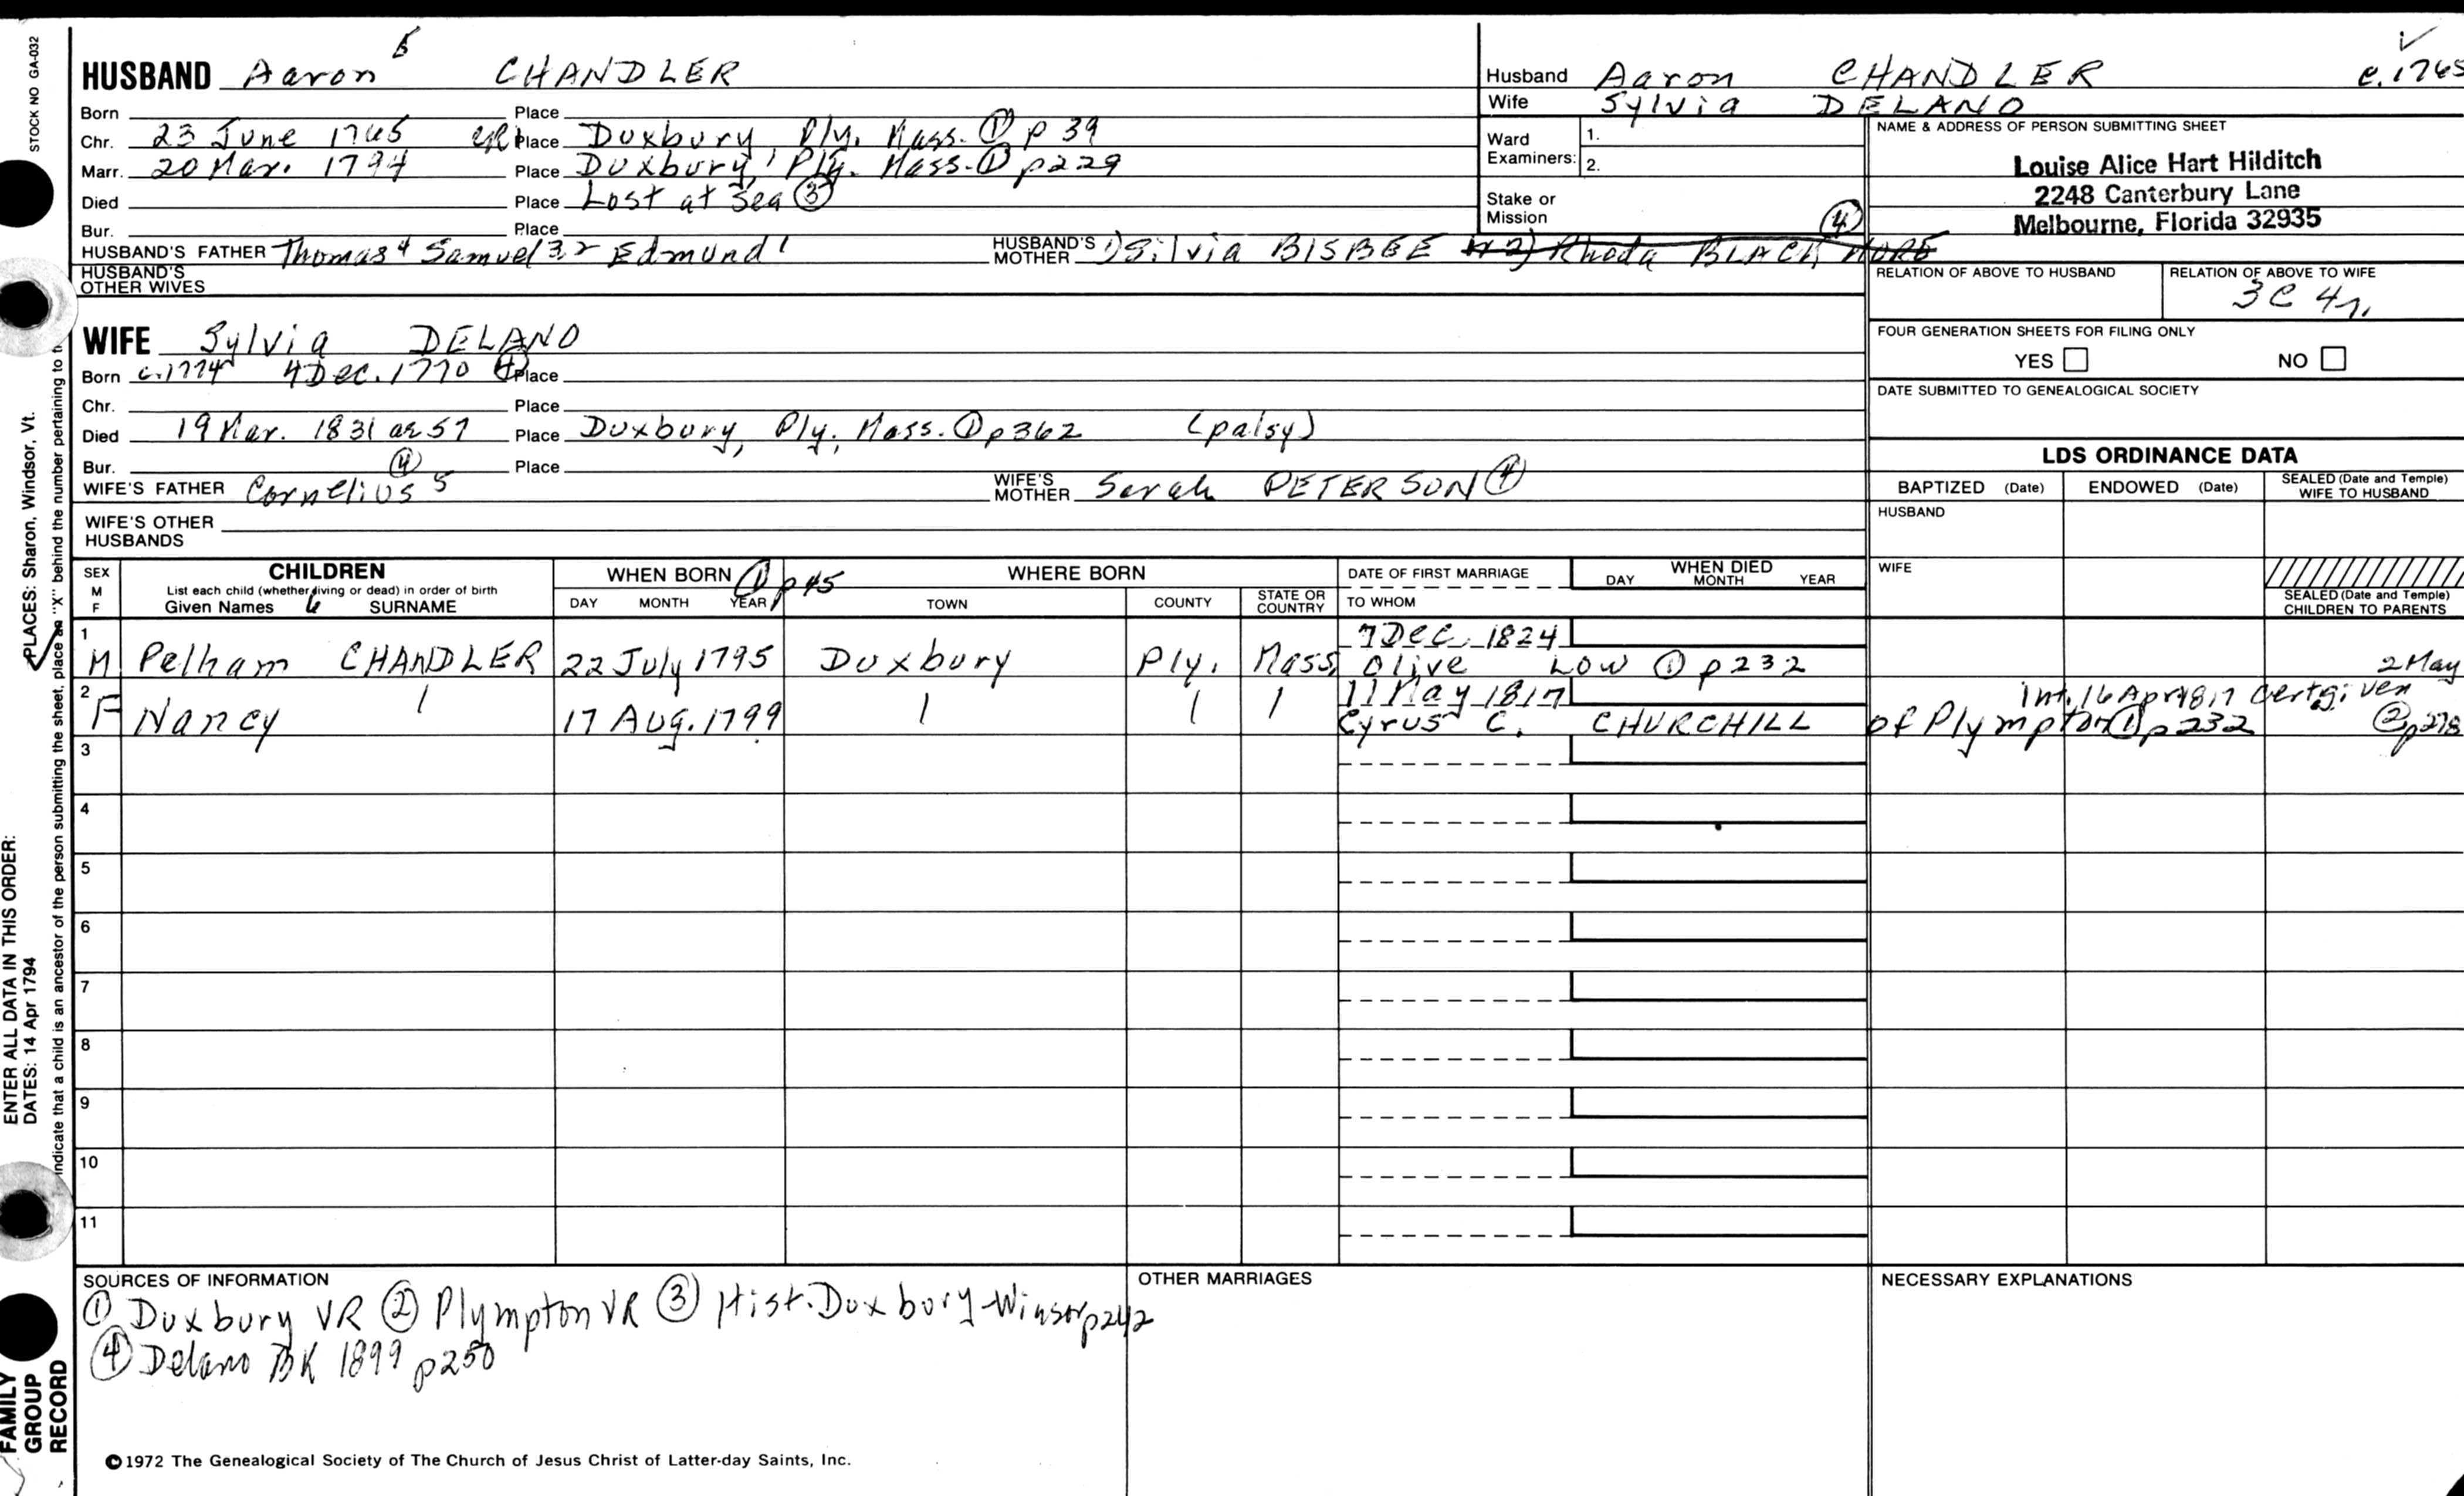 STOCK NO GA-032
HUSBAND Aaron 5 CHANDLER
Born Place
Chr. 23 June 1765 Place Duxbury, Ply. Mass. ① p 39
Marr. 20 Mar. 1794 Place Duxbury, Ply. Mass. ① p229
Died Place Lost at Sea ③
Bur. Place
HUSBAND'S FATHER Thomas 4 Samuel 3 2 Edmund 1 HUSBAND'S MOTHER 1) Silvia BISBEE 2) Rhoda BLACKMORE ④
HUSBAND'S OTHER WIVES
Husband Aaron CHANDLER c.1765
Wife Sylvia DELANO
Ward Examiners: 1.
2.
Stake or Mission
NAME & ADDRESS OF PERSON SUBMITTING SHEET
Louise Alice Hart Hilditch
2248 Canterbury Lane
Melbourne, Florida 32935
RELATION OF ABOVE TO HUSBAND RELATION OF ABOVE TO WIFE
3C 4r.
FOUR GENERATION SHEETS FOR FILING ONLY
YES NO
DATE SUBMITTED TO GENEALOGICAL SOCIETY
WIFE Sylvia DELANO
Born c.1774 4 Dec. 1770 ④ Place
Chr. Place
Died 19 Mar. 1831 ae 57 Place Duxbury, Ply. Mass. ① p362 (palsy)
Bur. Place
WIFE'S FATHER Cornelius 5 ④ WIFE'S MOTHER Sarah PETERSON ④
WIFE'S OTHER HUSBANDS
LDS ORDINANCE DATA
BAPTIZED (Date) ENDOWED (Date) SEALED (Date and Temple) WIFE TO HUSBAND
HUSBAND
WIFE
SEALED (Date and Temple) CHILDREN TO PARENTS
SEX M F
CHILDREN
List each child (whether living or dead) in order of birth
Given Names 6 SURNAME
WHEN BORN ① p45
DAY MONTH YEAR
WHERE BORN
TOWN COUNTY STATE OR COUNTRY
DATE OF FIRST MARRIAGE
TO WHOM
WHEN DIED
DAY MONTH YEAR
1 M Pelham CHANDLER 22 July 1795 Duxbury Ply. Mass. 7 Dec. 1824
Olive LOW ① p232
2 F Nancy 17 Aug. 1799 11 May 1817
Cyrus C. CHURCHILL of Plympton ① p232
2 May
Int. 16 Apr 1817 Cert given
② p278
3
4
5
6
7
8
9
10
11
SOURCES OF INFORMATION
① Duxbury VR ② Plympton VR ③ Hist. Duxbury-Winsor p242
④ Delano BK 1899 p250
OTHER MARRIAGES
NECESSARY EXPLANATIONS
©1972 The Genealogical Society of The Church of Jesus Christ of Latter-day Saints, Inc.
ENTER ALL DATA IN THIS ORDER:
DATES: 14 Apr 1794
PLACES: Sharon, Windsor, Vt.
indicate that a child is an ancestor of the person submitting the sheet, place an "X" behind the number pertaining to
FAMILY GROUP RECORD